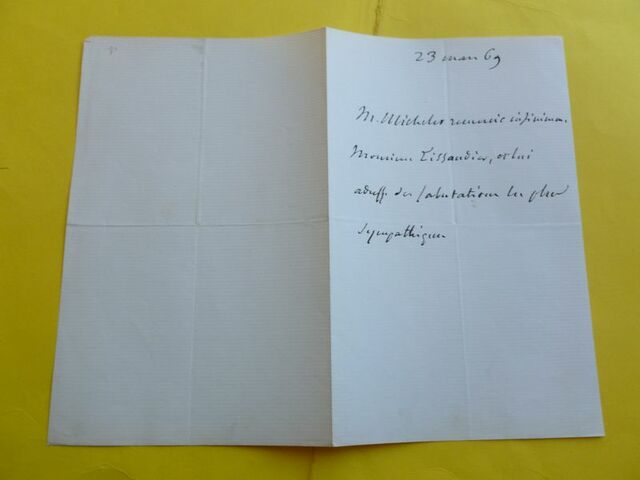 23 mars 69
M. Michelet remercie infiniment
Monsieur Tissandier, et lui
adresse ses salutations les plus
sympathiques